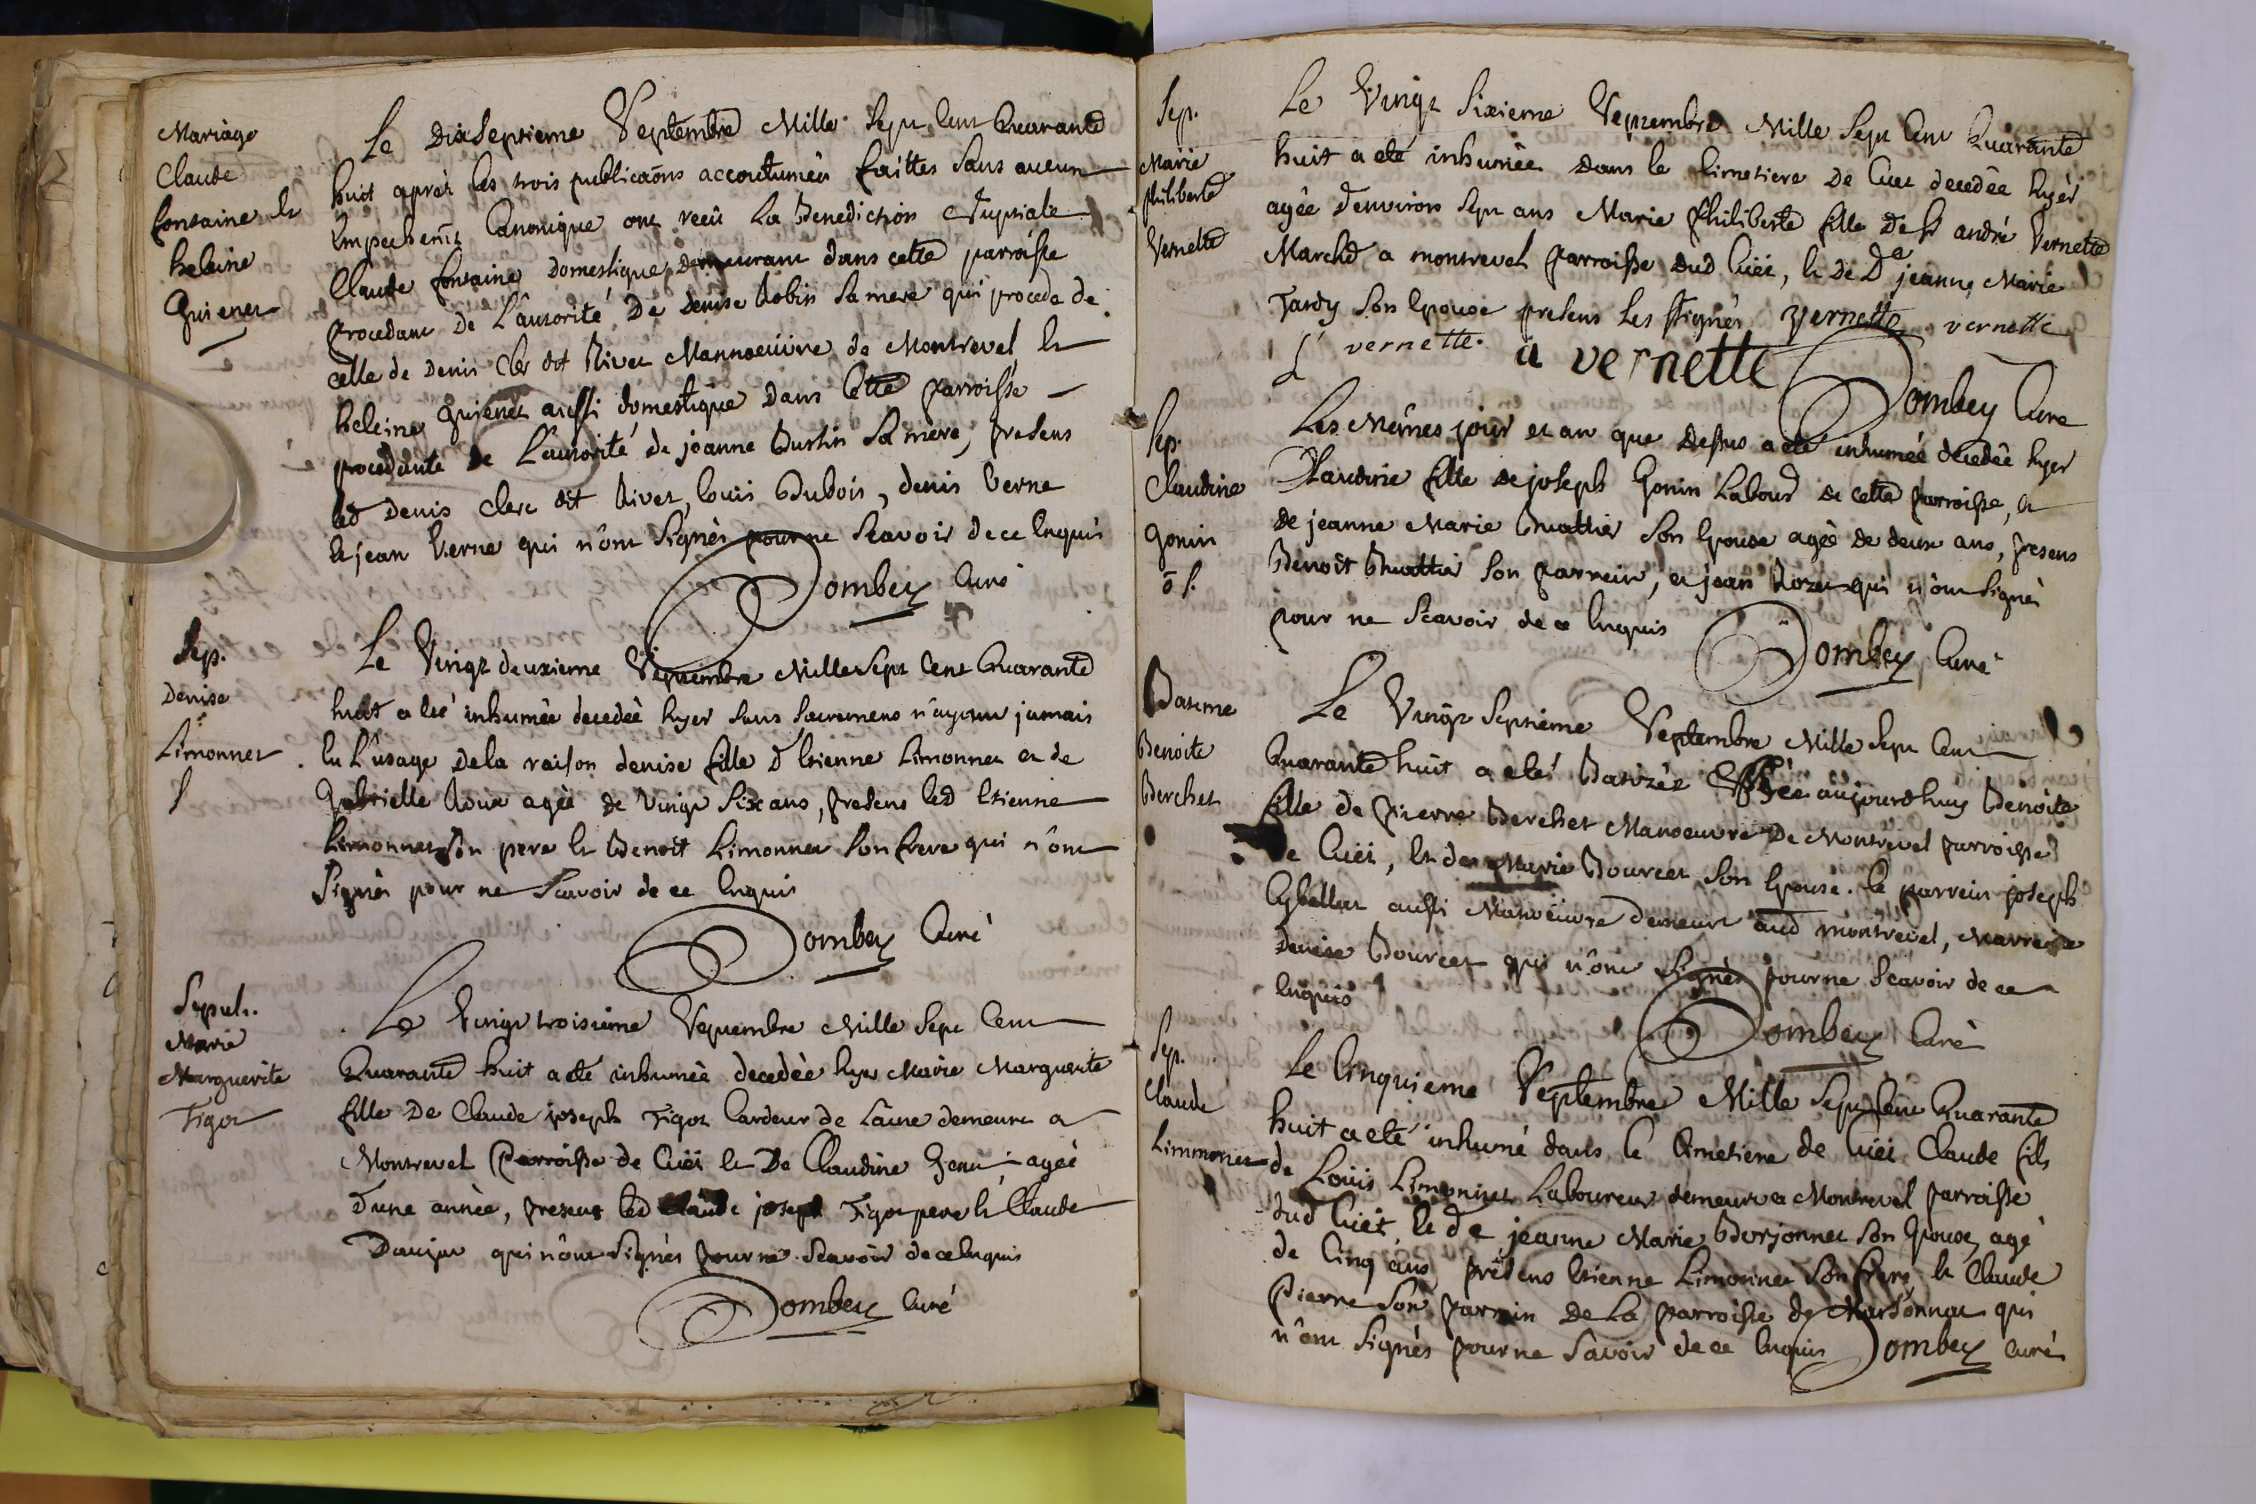 Mariage
Claude
fontaine et
heleine
Guienet
Le Dixseptieme Septembre Mille Sept Cent Quarante
huit après les trois publicaõns accoutumées faittes sans aucun
Empechemt Canonique ont reçû La Benediction Nuptiale
Claude fontaine domestique demeurant dans cette parroisse
procedant de L'autorité De denise Robin sa mere qui procede de
celle de Denis Clerc dit Rivet Mannoeuvre de Montrevel et
heleine Guienet aussi domestique dans Cette parroisse
procedante de L'autorité de jeanne Burtin sa mère, presens
led Denis Clerc dit Rivet, Louis Dubois, denis Verne
et jean Verne qui n'ont Signés pour ne Scavoir de ce Enquis
Dombey Curé
Sep.
Denise
Limonnet
Le Vingt deuxieme Septembre Mille Sept Cent Quarante
huit a Eté inhumée decedée hyer sans sacremens n'ayant jamais
Eu L'usage de la raison denise fille d'Etienne Limonnet et de
Gabrielle Roux agée de Vingt Six ans, presens led Etienne
Limonnet son pere et Benoit Limonnet son frere qui n'ont
Signés pour ne Scavoir de ce Enquis
Dombey Curé
Sepult.
Marie
Marguerite
Figot
Le Vingt troisième Septembre Mille Sept Cent
Quarante huit a eté inhumée decedée hyer Marie Marguerite
fille De Claude joseph Figot Cardeur de Laine demeurt a
Montrevel Parroisse de Cuët et De Claudine agée
d'une année, presens led Claude joseph Figot pere et Claude
Daujat qui n'ont Signés pour ne Scavoir de ce Enquis
Dombey Curé
Sep.
Marie
philiberte
Vernette
Le Vingt Sixieme Septembre Mille Sept Cent Quarante
huit a eté inhumée dans le Cimetiere De Cuet decedée hyer
agée d'environ Sept ans Marie philiberte fille De Sr andré Vernette
Marchd a montrevel parroisse dud Cuët, et de De jeanne Marie
Tardy son Epouse presens Les Ssignés Vernette vernette
vernette. a vernette
Dombey Curé
Sep.
Claudine
Gonin
Les Mêmes jour et an que dessus a eté inhumée decedée hyer
Claudine fille de joseph Gonin Labourr de cette parroisse, et
de jeanne Marie Buattier son Epouse agée de deux ans, presens
Benoit Buattier son parrein, et jean Rozet qui n'ont Signés
pour ne Scavoir de ce Enquis
Dombey Curé
Batême
Benoite
Berchet
Le Vingt Septième Septembre Mille Sept Cent
Quarante huit a eté Batizée Née aujourdhuy Benoite
fille de Pierre Berchet Manoeuvre De Montrevel parroisse
de Cuët, et de Marie Bourcet son Epouse. Le parrein joseph
aussi Manoeuvre demeurt aud montrevel, Marreine
denise Bourcet qui n'ont Signés pour ne Scavoir de ce
Enquis
Dombey Curé
Sep.
Claude
Limmonet
Le Cinquieme Septembre Mille Sept Cent Quarante
huit a eté inhumé dans le Cimetiere de Cuët Claude fils
de Louis Limonnet Laboureur demeurt a Montrevel parroisse
dud Cuët, et de jeanne Marie Borjonnet son Epouse, agé
de Cinq ans presens Etienne Limonnet son frere, et Claude
Pierre son parrein de La parroisse de Marsonnat qui
n'ont Signés pour ne Savoir de ce Enquis Dombey Curé